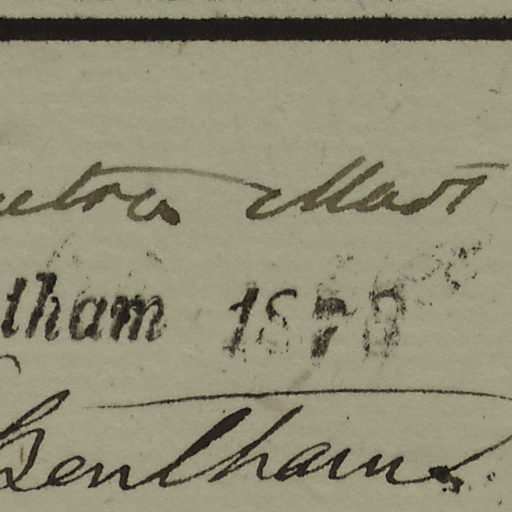 etra Mart
tham 1878
Bentham